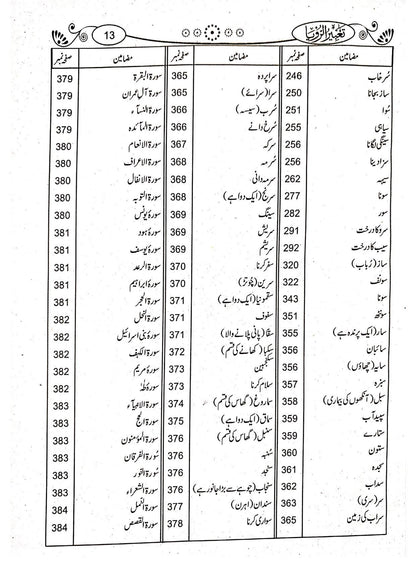 تعبیر الرؤیا
13
مضامین صفحہ نمبر
سُرخاب 246
ساز بجانا 250
سُوا 251
سیاہی 255
سینگی لگانا 256
سزا دینا 256
262
سونا 277
سور 282
سرو کا درخت 291
سیب کا درخت 292
ساز (رباب) 320
سونف 322
سونا 343
سونٹھ 351
سار (ایک پرندہ ہے) 355
سائبان 356
سایہ (چھاؤں) 356
سبزہ 357
سبل (آنکھوں کی بیماری) 358
سپید آب 359
ستارے 359
ستون 360
سجدہ 361
سداب 362
سر (سری) 363
سراب کی زمین 365
مضامین صفحہ نمبر
سراپردہ 365
سرا (سرائے) 365
سُرب (سیسہ) 366
سُرخ دانے 366
سرکہ 367
سُرمہ 368
سرمہ دانی 368
سرنج (ایک دوا ہے) 368
سینگ 369
سریش 369
سریشم 369
سفر کرنا 370
سرین (چُوتڑ) 370
سقمونیا (ایک دوا ہے) 371
سفوف 371
سقّا (پانی پلانے والا) 371
سکبا (کھانے کی قسم) 372
سکنجبین 373
سلام کرنا 373
سماروغ (گھاس کی قسم) 374
سماق (ایک دوا ہے) 375
سنبل (گھاس کی قسم) 376
سُنبہ
سنجد
سنجاب (چوہے سے بڑا جانور ہے) 376
سندان (اہرن) 376
سواری کرنا 378
مضامین صفحہ نمبر
سورۃ البقرۃ 379
سورۃ آل عمران 379
سورۃ النسآء 379
سورۃ المآئدہ 379
سورۃ الانعام 380
سورۃ الاعراف 380
سورۃ الانفال 380
سورۃ التوبہ 380
سورۂ یونس 380
سورۂ ہود 381
سورۂ یوسف 381
سورۃ الرعد 381
سورۂ ابراہیم 381
سورۃ الحجر 381
سورۃ النحل 382
سورۂ بنی اسرائیل 382
سورۃ الکہف 382
سورۂ مریم 382
سورۂ طٰہٰ 382
سورۃ الانبیآء 383
سورۃ الحج 383
سورۃ المؤمنون 383
سورۃ الفرقان 383
سورۃ النور 383
سورۃ الشعراء 383
سورۃ النمل 384
سورۃ القصص 384